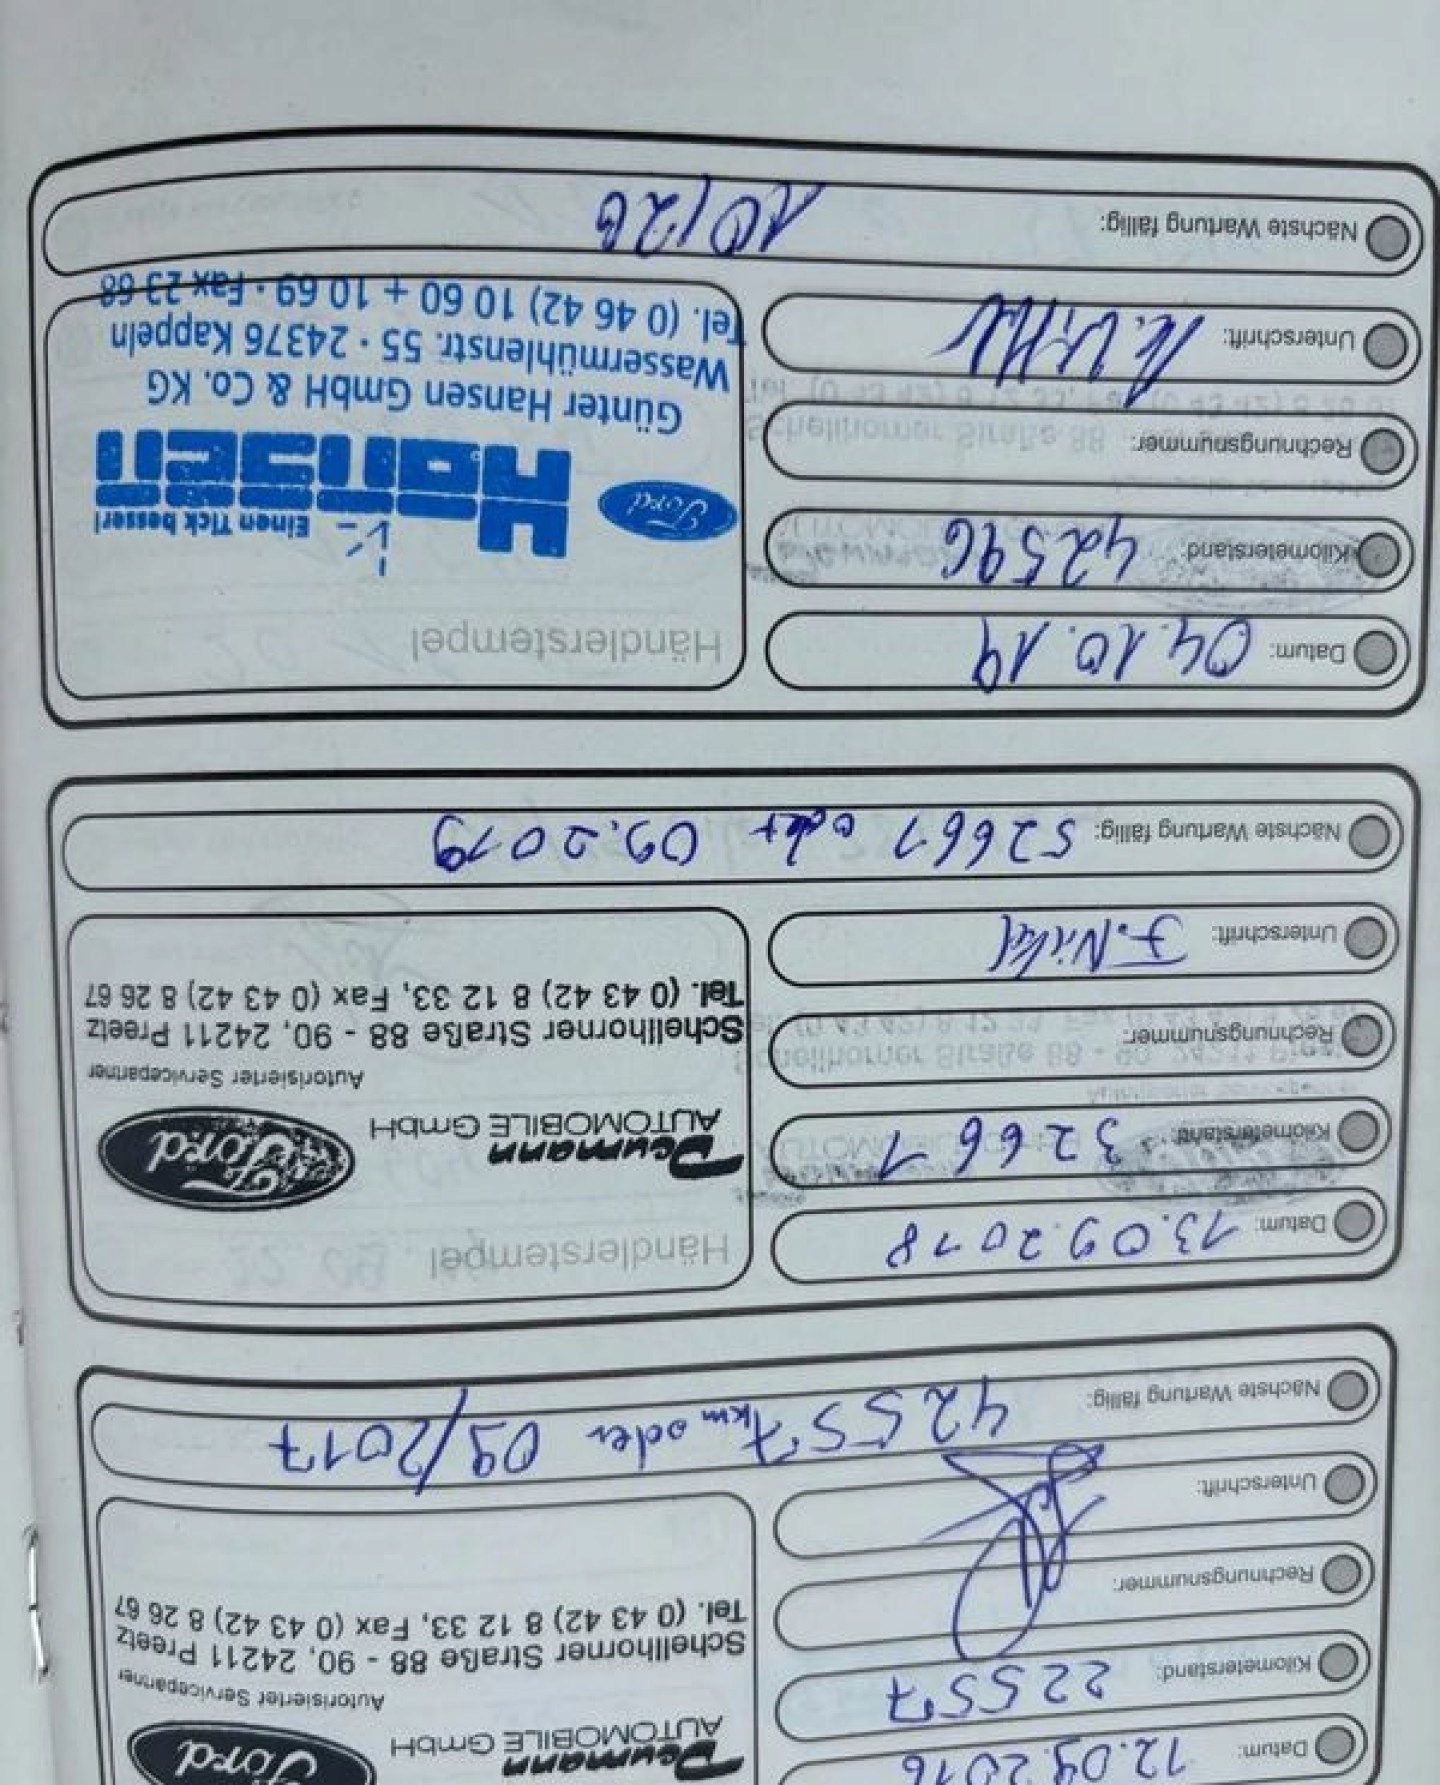 Datum: 12.09.2016
Deumann
AUTOMOBILE GmbH
Ford
Autorisierter Servicepartner
Schellhorner Straße 88 - 90, 24211 Preetz
Tel. (0 43 42) 8 12 33, Fax (0 43 42) 8 26 67
Kilometerstand: 22557
Rechnungsnummer:
Unterschrift:
Nächste Wartung fällig: 42557 km oder 09/2017
Datum: 13.09.2018
Händlerstempel
Kilometerstand: 32661
Deumann
AUTOMOBILE GmbH
Ford
Autorisierter Servicepartner
Schellhorner Straße 88 - 90, 24211 Preetz
Tel. (0 43 42) 8 12 33, Fax (0 43 42) 8 26 67
Rechnungsnummer:
Unterschrift: F. Nickel
Nächste Wartung fällig: 52661 oder 09.2019
Datum: 04.10.19
Händlerstempel
Kilometerstand: 42596
Rechnungsnummer:
Ford
Einen Tick besser!
Hansen
Günter Hansen GmbH & Co. KG
Wassermühlenstr. 55 · 24376 Kappeln
Tel. (0 46 42) 10 60 + 10 69 · Fax 23 68
Unterschrift:
Nächste Wartung fällig: 10/20